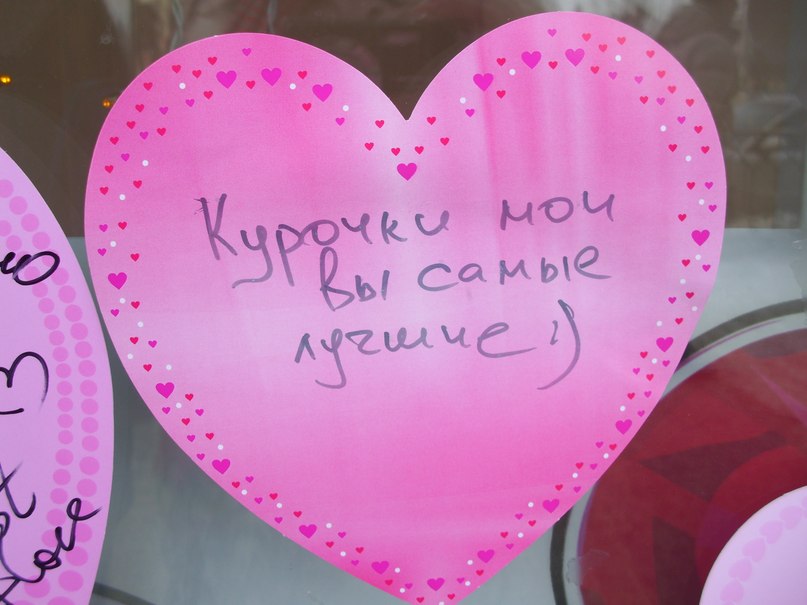 Курочки мои
вы самые
лучшие :)
love